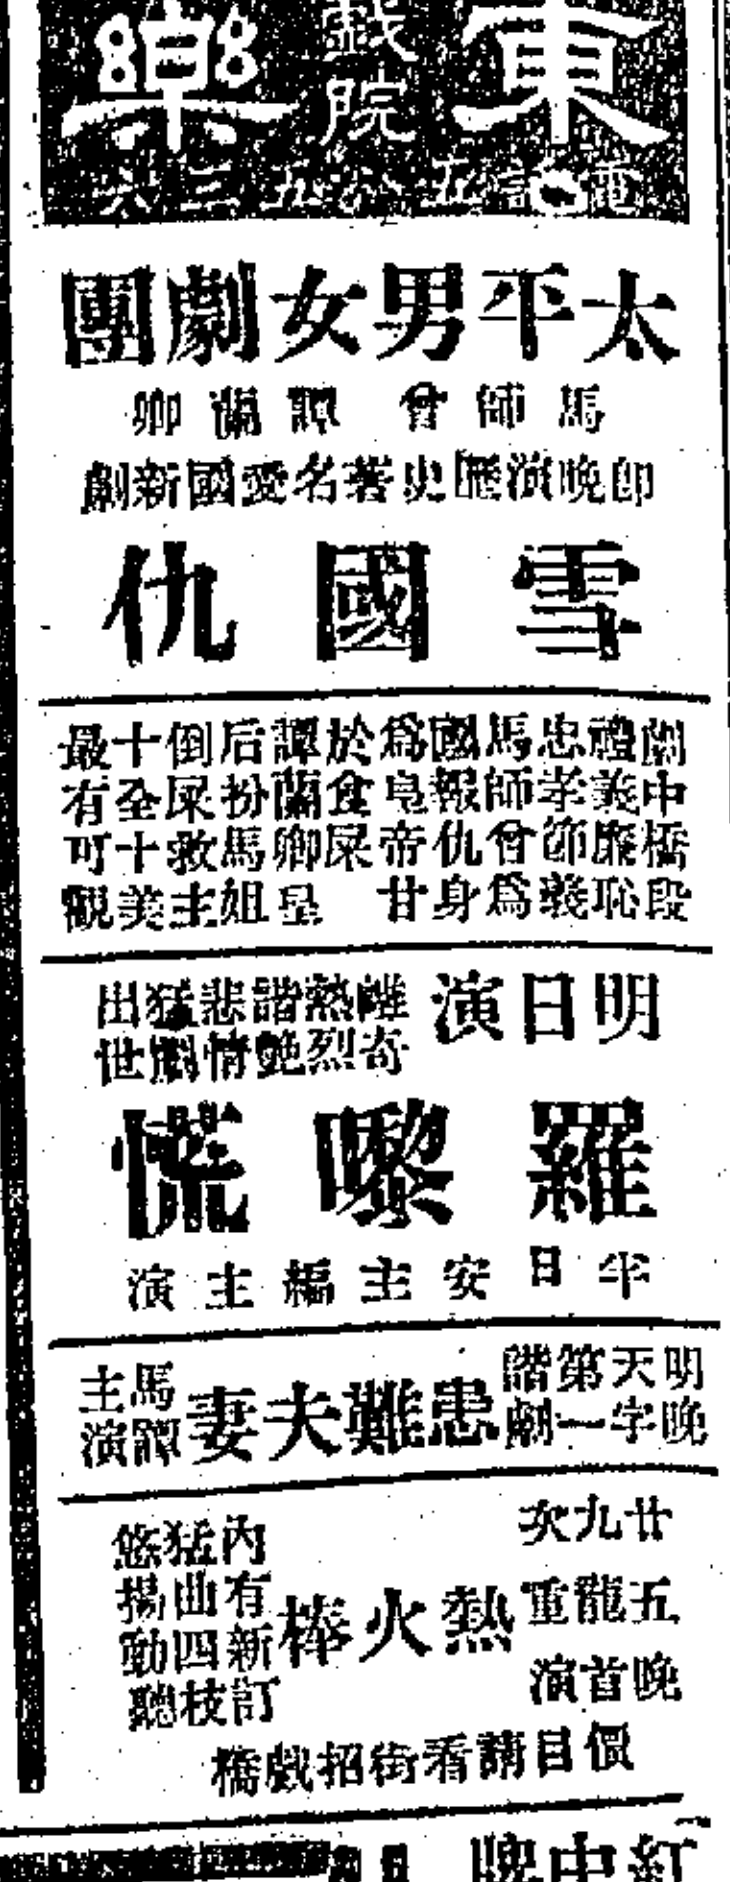 東樂戲院
太平男女劇團
馬師曾 譚蘭卿
即晚演歷史著名愛國新劇
雪國仇
劇中橋段
禮義廉恥
忠孝節義
馬師曾為
國報仇身
為皇帝甘
於食屎
譚蘭卿皇
后扮馬姐
倒屎救主
十全十美
最有可觀
明日演
離奇熱烈諧艷悲情猛劇出世
羅嚟慌
半日安主編主演
明晚天字第一諧劇
患難夫妻
馬譚主演
廿九次
五龍重
晚首演
熱火棒
內有新訂
猛曲四枝
悠揚動聽
價目請看街招戲橋
紅中牌